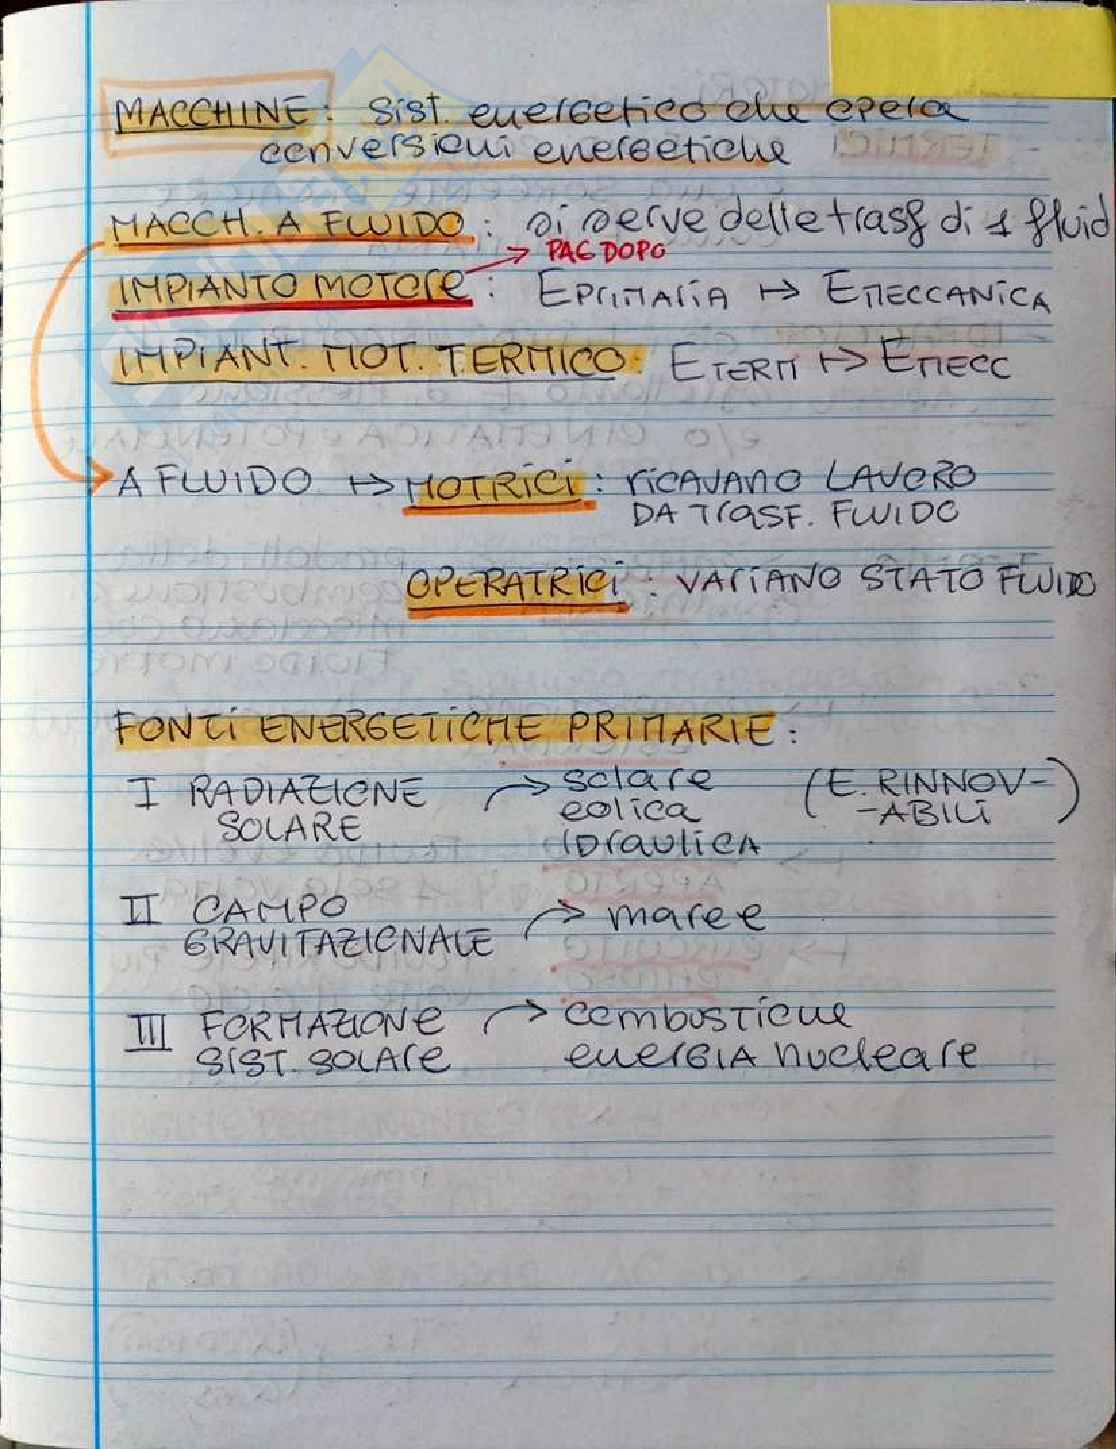 MACCHINE: sist. energetico che opera
conversioni energetiche
MACCH. A FLUIDO: si serve delle trasf di 1 fluid
PAG DOPO
IMPIANTO MOTORE: EPRIMARIA ↦ EMECCANICA
IMPIANT. MOT. TERMICO: ETERM ↦ EMECC
A FLUIDO ↦ MOTRICI: RICAVANO LAVORO
DA TRASF. FLUIDO
OPERATRICI: VARIANO STATO FLUIDO
FONTI ENERGETICHE PRIMARIE:
I RADIAZIONE SOLARE → solare (E. RINNOV-
eolica -ABILI)
idraulica
II CAMPO GRAVITAZIONALE → maree
III FORMAZIONE → combustione
SIST. SOLARE energia nucleare